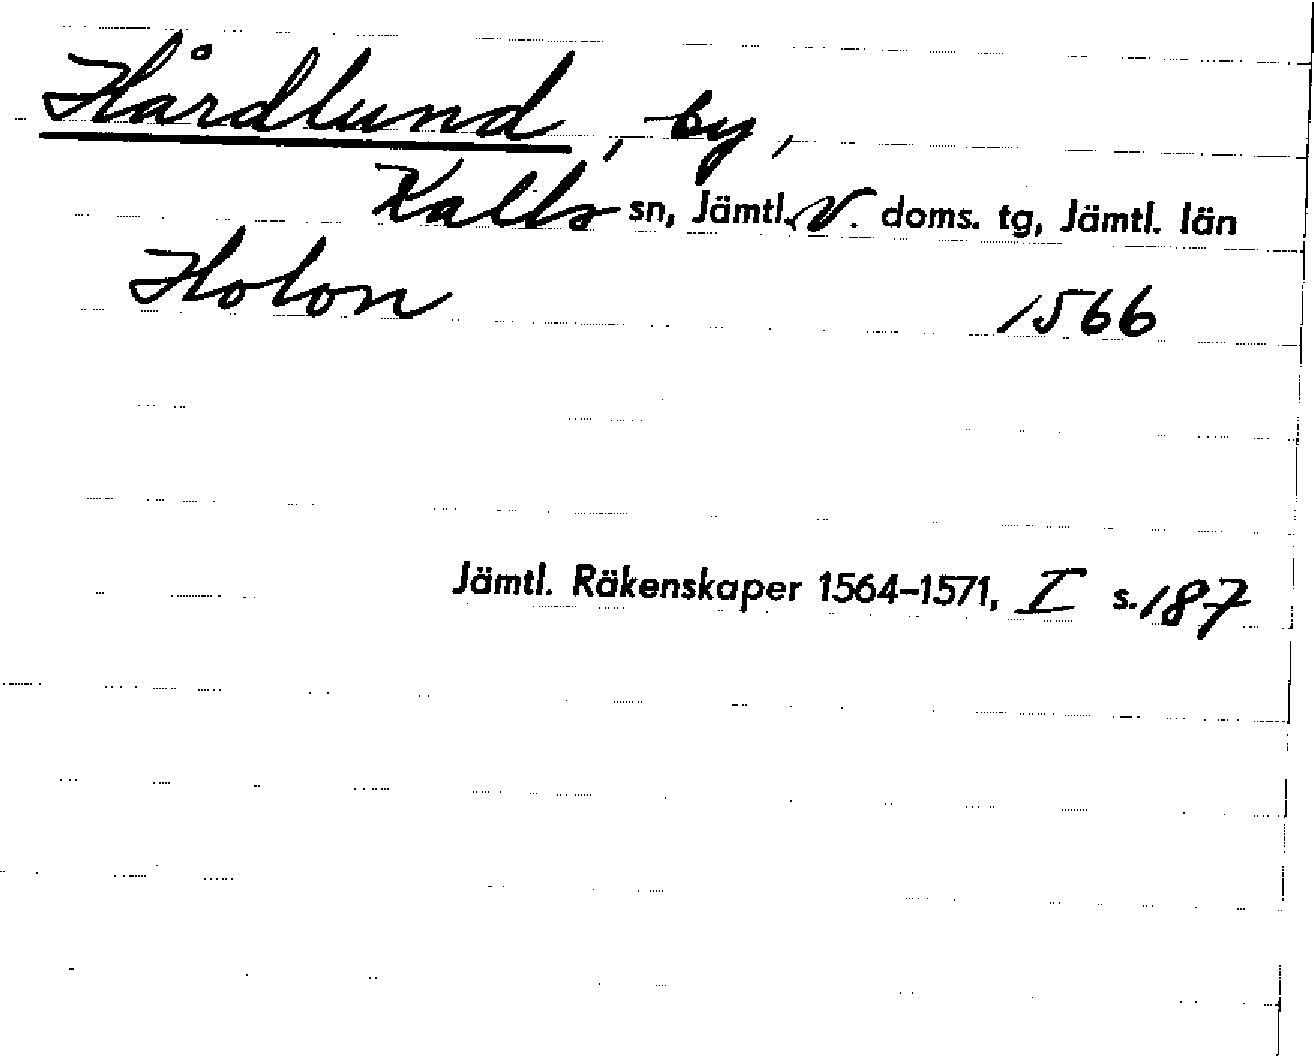 Hårdlund, by,
Kalls sn, Jämtl. V. doms. tg, Jämtl. län
Holon 1566
Jämtl. Räkenskaper 1564–1571, I s. 187